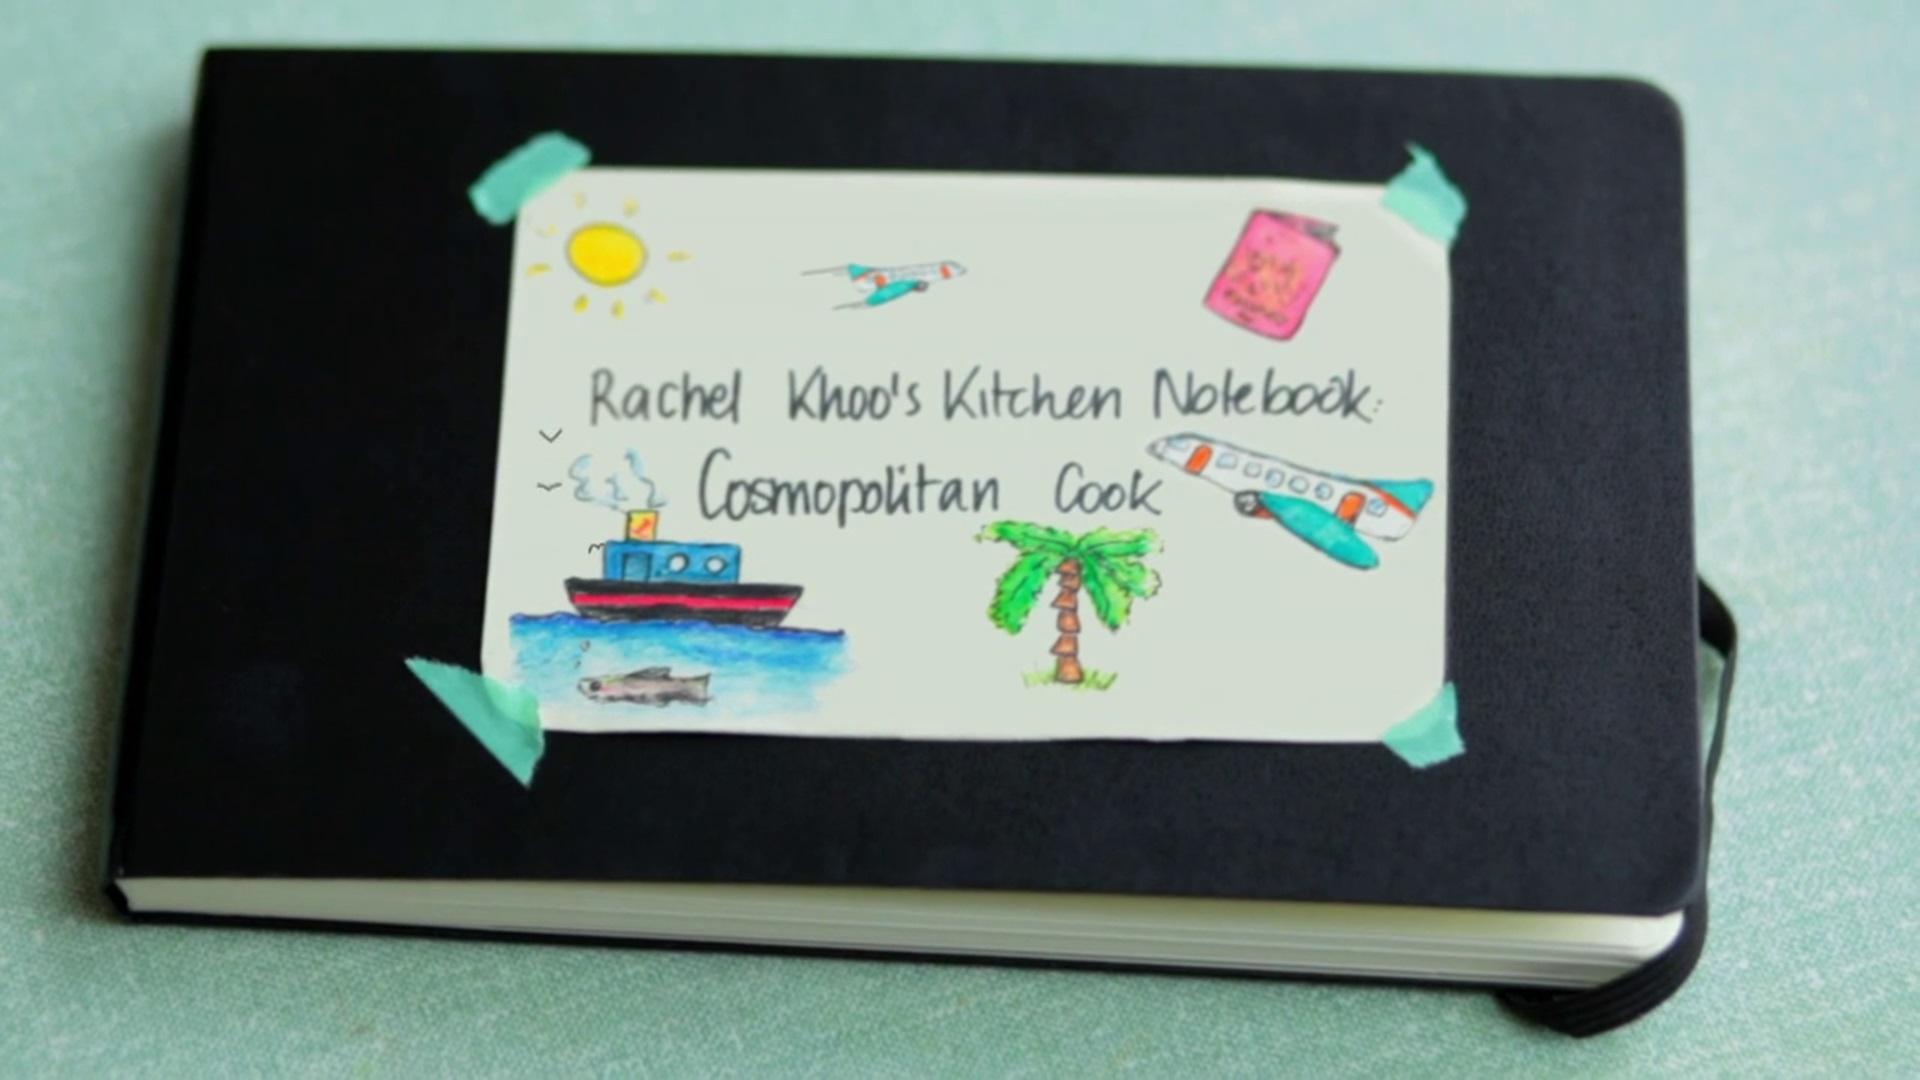 Rachel Khoo's Kitchen Notebook:
Cosmopolitan Cook